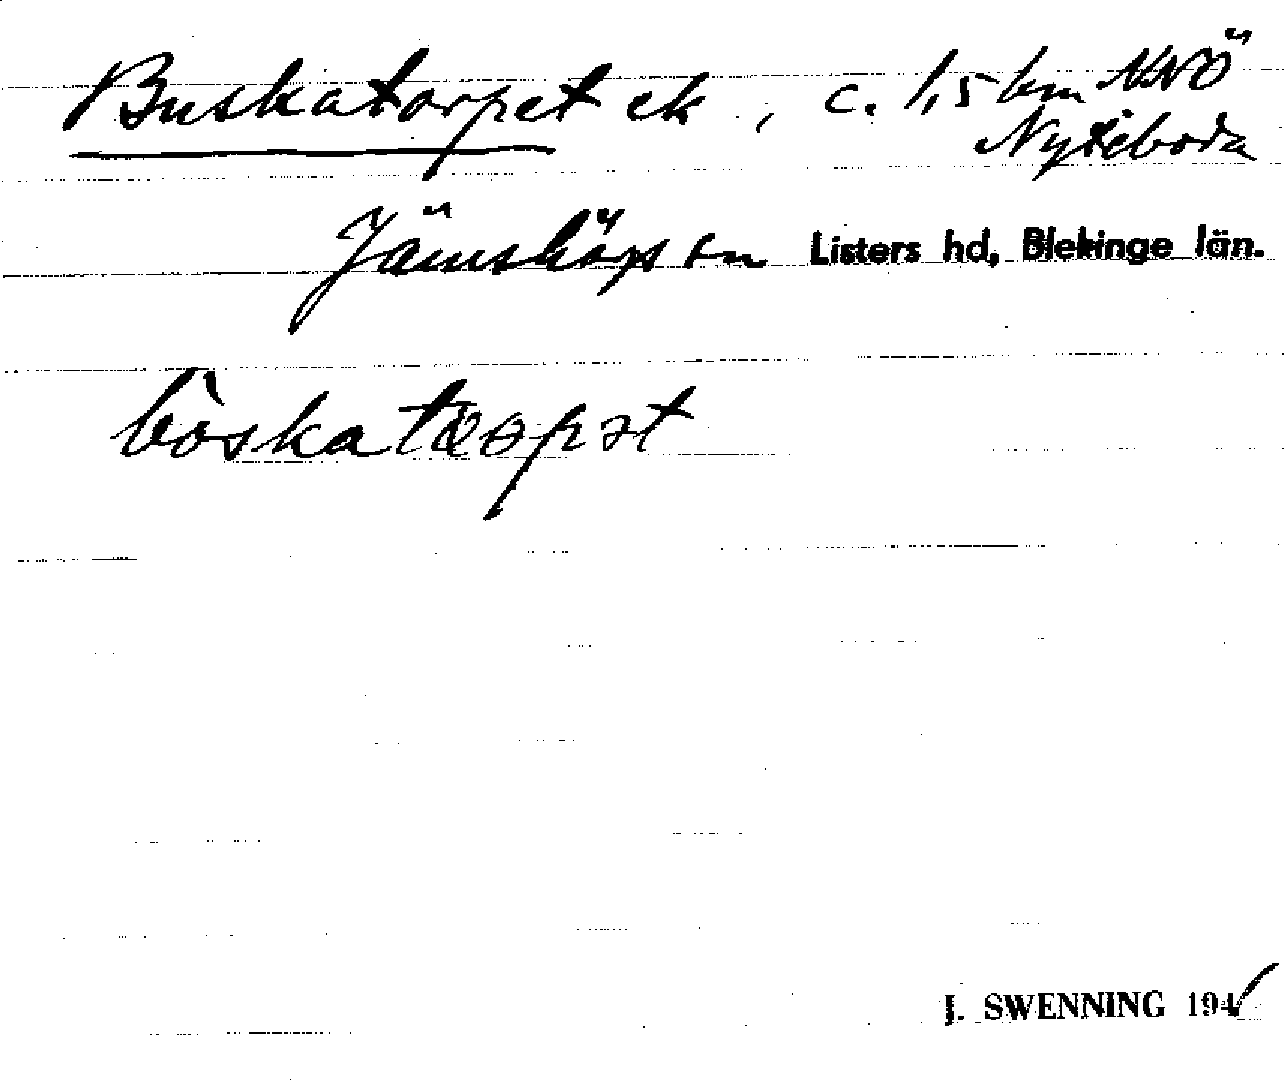 Buskatorpet ek, c. 1,5 km NNÖ
Nyteboda
Jämshögs sn Listers hd, Blekinge län.
J. SWENNING 194